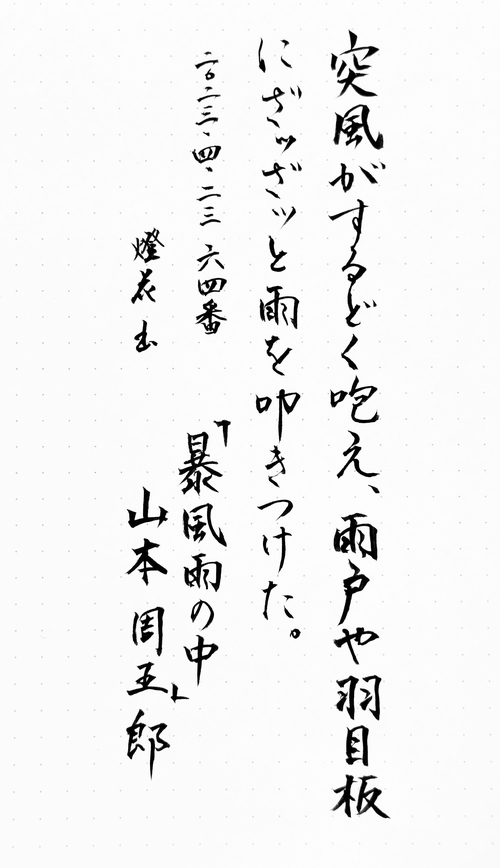 突風がするどく咆え、雨戸や羽目板
にざッざッと雨を叩きつけた。
二〇二三、四、二三 六四番
「暴風雨の中」
燈花
山本周五郎